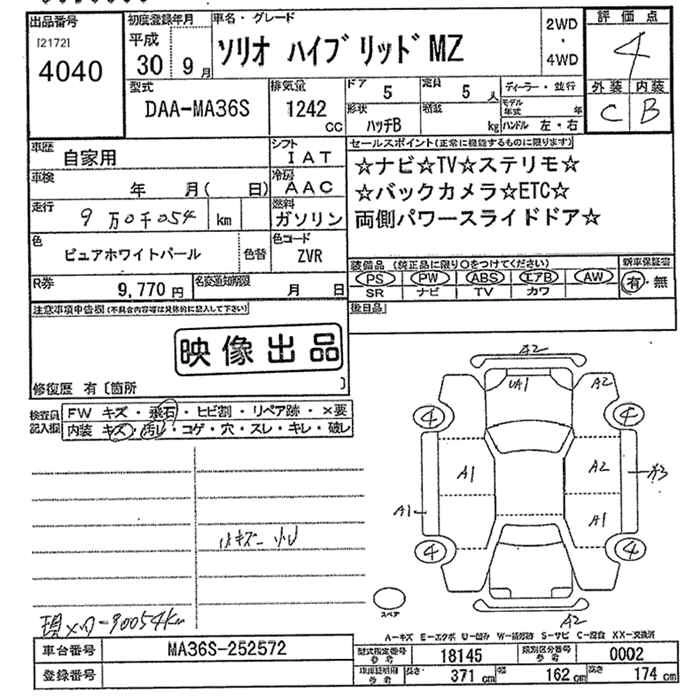 出品番号 初度登録年月 車名・グレード 2WD ・ 4WD 評価点
[2172]
4040 平成 30 9月 ソリオ ハイブリッドMZ 4
型式 排気量 ドア 5 定員 5人 ディーラー・並行 外装 内装
DAA-MA36S 1242 CC 形状 ハッチB 積載 kg モデル年式 年 C B
ハンドル 左・右
車歴 自家用 シフト IAT セールスポイント(正常に機能するものに限ります)
☆ナビ☆TV☆ステリモ☆
車検 年 月( 日) 冷房 AAC ☆バックカメラ☆ETC☆
走行 9万0千054 km 燃料 ガソリン 両側パワースライドドア☆
色 ピュアホワイトパール 色替 色コード ZVR
装備品 (純正品に限り○をつけてください) 新車保証書
PS PW ABS エアB AW 有・無
SR ナビ TV カワ
R券 9,770円 名変通知期限 月 日
注意事項申告欄(不具合内容等は具体的に記入して下さい) 後日品
映像出品
修復歴 有〔箇所 〕
検査員記入欄 FW キズ・飛石・ヒビ割・リペア跡・×要
内装 キズ・汚レ・コゲ・穴・スレ・キレ・破レ
A2
UA1 A2
4 4
A1 A2 A3
A1 A1
4 4
スペア
A2
現メーター90054km
A-キズ E-エクボ U-凹み W-補修跡 S-サビ C-腐食 XX-交換済
車台番号 MA36S-252572 型式指定番号 参考 18145 類別区分番号 参考 0002
登録番号 車庫証明用 参考 長さ 371cm 幅 162cm 高さ 174cm